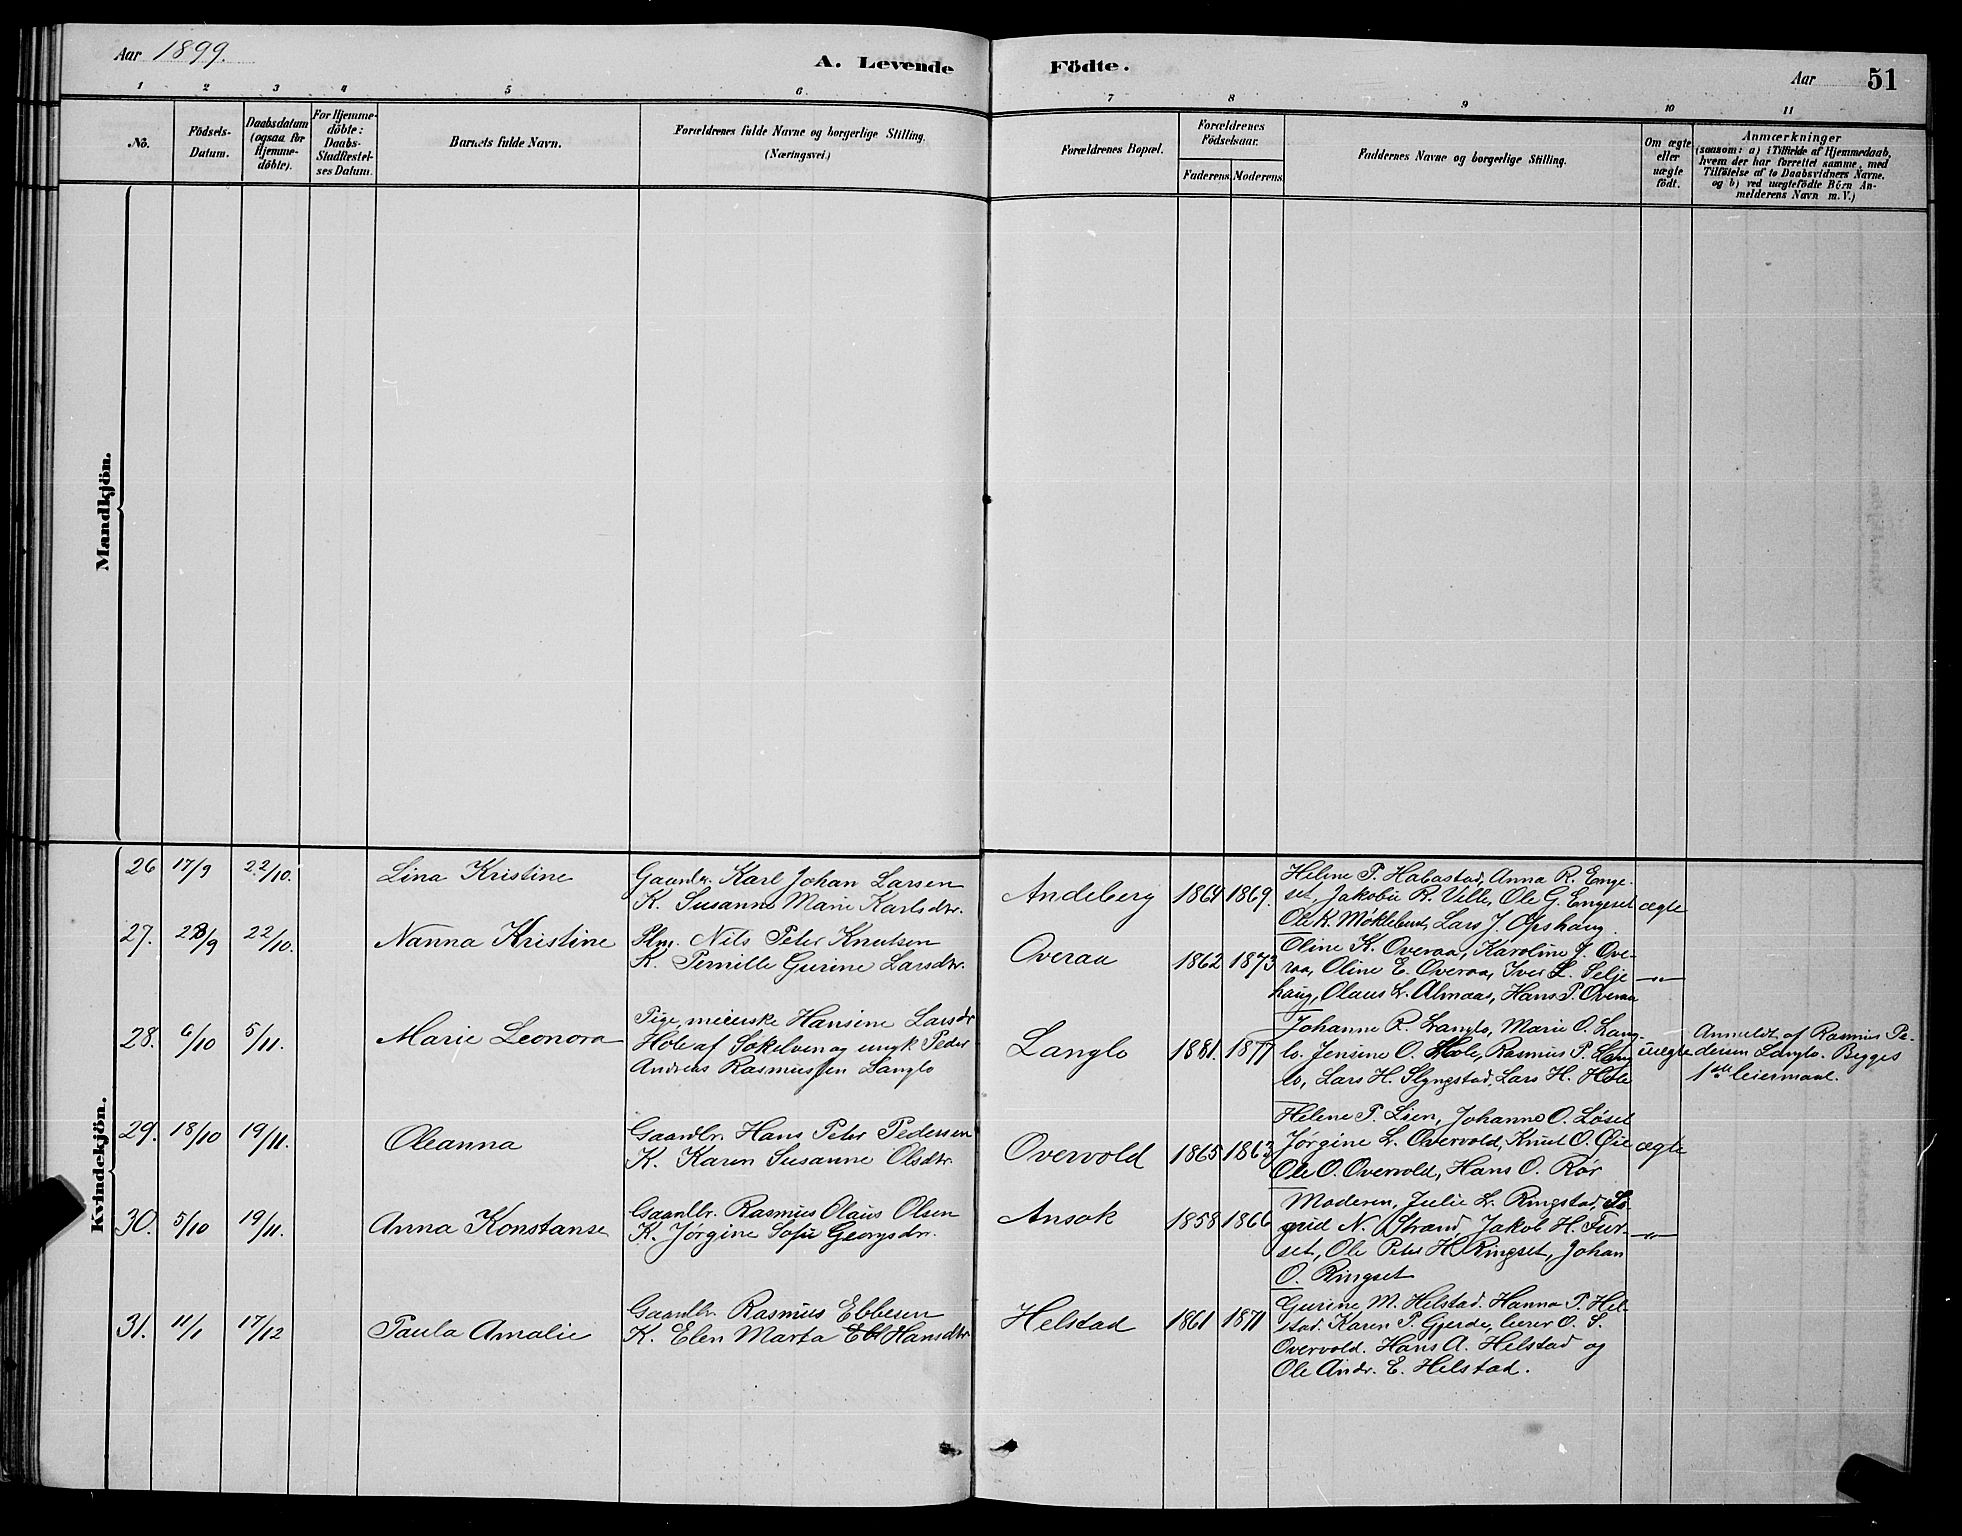 Aar 1899.
A. Levende Födte.
Aar 51
1 2 3 4 5 6 7 8 9 10 11
No.
Födsels-
Datum.
Daabsdatum
(ogsaa for
Hjemme-
döbte).
For Hjemme-
döbte:
Daabs-
Stadfæstel-
ses Datum.
Barnets fulde Navn.
Forældrenes fulde Navne og borgerlige Stilling.
(Næringsvei.)
Forældrenes Bopæl.
Forældrenes
Födselsaar.
Faderens. Moderens.
Faddernes Navne og borgerlige Stilling.
Om ægte
eller
uægte
födt.
Anmærkninger
(saasom: a) i Tilfælde af Hjemmedaab,
hvem der har forrettet samme, med
Tilföielse af to Daabsvidners Navne.
og b) ved uægtefödte Börn An-
melderens Navn m. V.)
Mandkjön.
Kvindekjön.
26 17/9 22/10. Lina Kristine
Gaardbr. Karl Johan Larsen
K. Susanne Marie Karlsdtr.
Andeberg 1864 1869.
Helene P. Habostad, Anna R. Enge-
set, Jakobie R. Velle, Ole G. Engeset
Ole K. Möklebust, Lars J. Opshaug.
ægte
27. 28/9 22/10. Nanna Kristine
Plm. Nils Peter Knutsen
K. Pernille Gurine Larsdtr.
Overaa 1862 1873
Oline K. Overaa, Karoline J. Ove-
raa, Oline E. Overaa, Iver L. Selje-
haug, Olaus L. Almaas, Hans P. Overaa
—"—
28. 6/10 5/11. Marie Leonora
Pige, meierske Hansine Larsdtr
Hole af Sökelven og ungk. Peder
Andreas Rasmussen Langlo
Langlo 1881. 1877
Johanne R. Langlo, Marie O. Lang-
lo, Jensine O. Hole, Rasmus P. Lang
lo, Lars H. Slyngstad, Lars H. Hole
uægte
Anmeldt af Rasmus Pe-
dersen Langlo. Begges
1ste leiermaal.
29. 18/10 19/11. Oleanna
Gaardbr. Hans Peter Pedersen
K. Karen Susanne Olsdtr.
Overvold 1865 1863
Helene P. Lien, Johanne O. Löset
Jörgine L. Overvold, Knut O. Öie
Ole O. Overvold, Hans O. Rör
ægte
30. 5/10 19/11. Anna Konstanse
Gaardbr. Rasmus Olaus Olsen
K. Jörgine Sofie Georgsdtr.
Ansok 1858 1866
Moderen, Julie L. Ringstad, Si-
grid N. Strand, Jakob H. Fur-
set, Ole Peter H Ringset, Johan
O. Ringset
—"—
31. 11/1 17/12 Paula Amalie
Gaardbr. Rasmus Ebbesen
K. Elen Marta Hansdtr
Helstad 1861 1871
Gurine M. Helstad. Hanna P. Hel-
stad. Karen P. Gjerde, lærer O. S.
Overvold. Hans A. Helstad og
Ole Andr. E. Helstad.